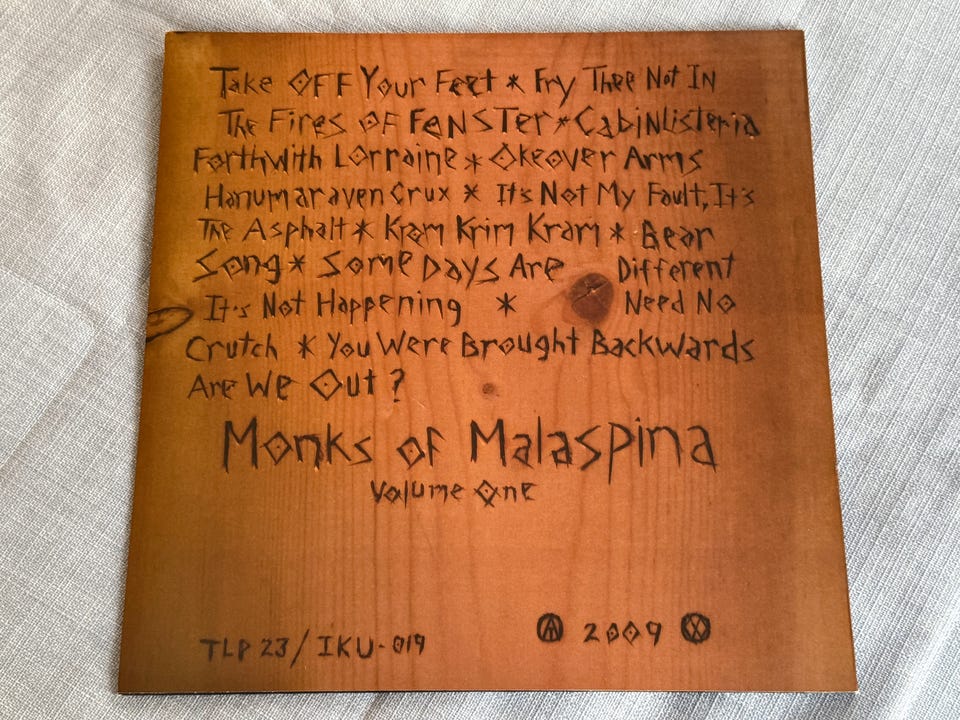 Take Off Your Feet * Fry Thee Not In
The Fires of Fenster * Cabinlisteria
Forthwith Lorraine * Okeover Arms
Hanumaraven Crux * It's Not My Fault, It's
The Asphalt * Kram Krim Kram * Bear
Song * Some Days Are Different
It's Not Happening * Need No
Crutch * You Were Brought Backwards
Are We Out?
Monks of Malaspina
Volume One
TLP 23/IKU-019 2009